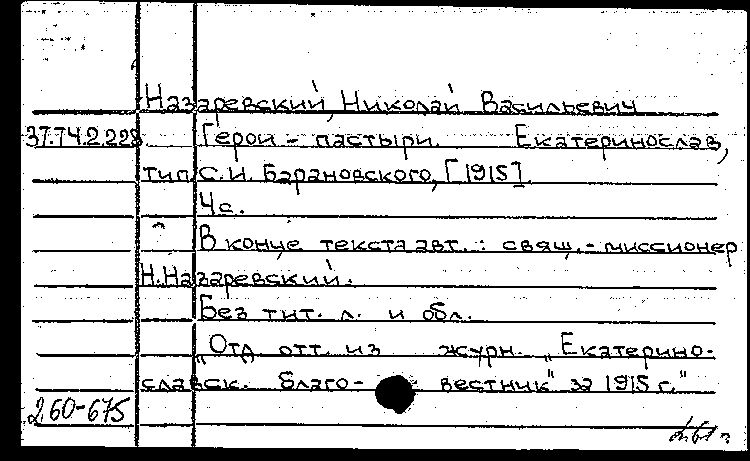 Назаревский, Николай Васильевич
37.74.2.228 Герои - пастыри. Екатеринослав,
тип. С.И. Барановского, [1915].
4с.
В конце текста авт.: свящ.-миссионер
Н.Назаревский.
Без тит. л. и обл.
"Отд. отт. из журн. "Екатерино-
славск. благо- вестник" за 1915 г."
260-675